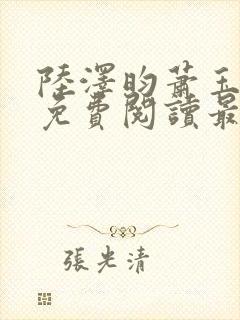 陸澤昀蕭玉
免費閱讀最
張光清